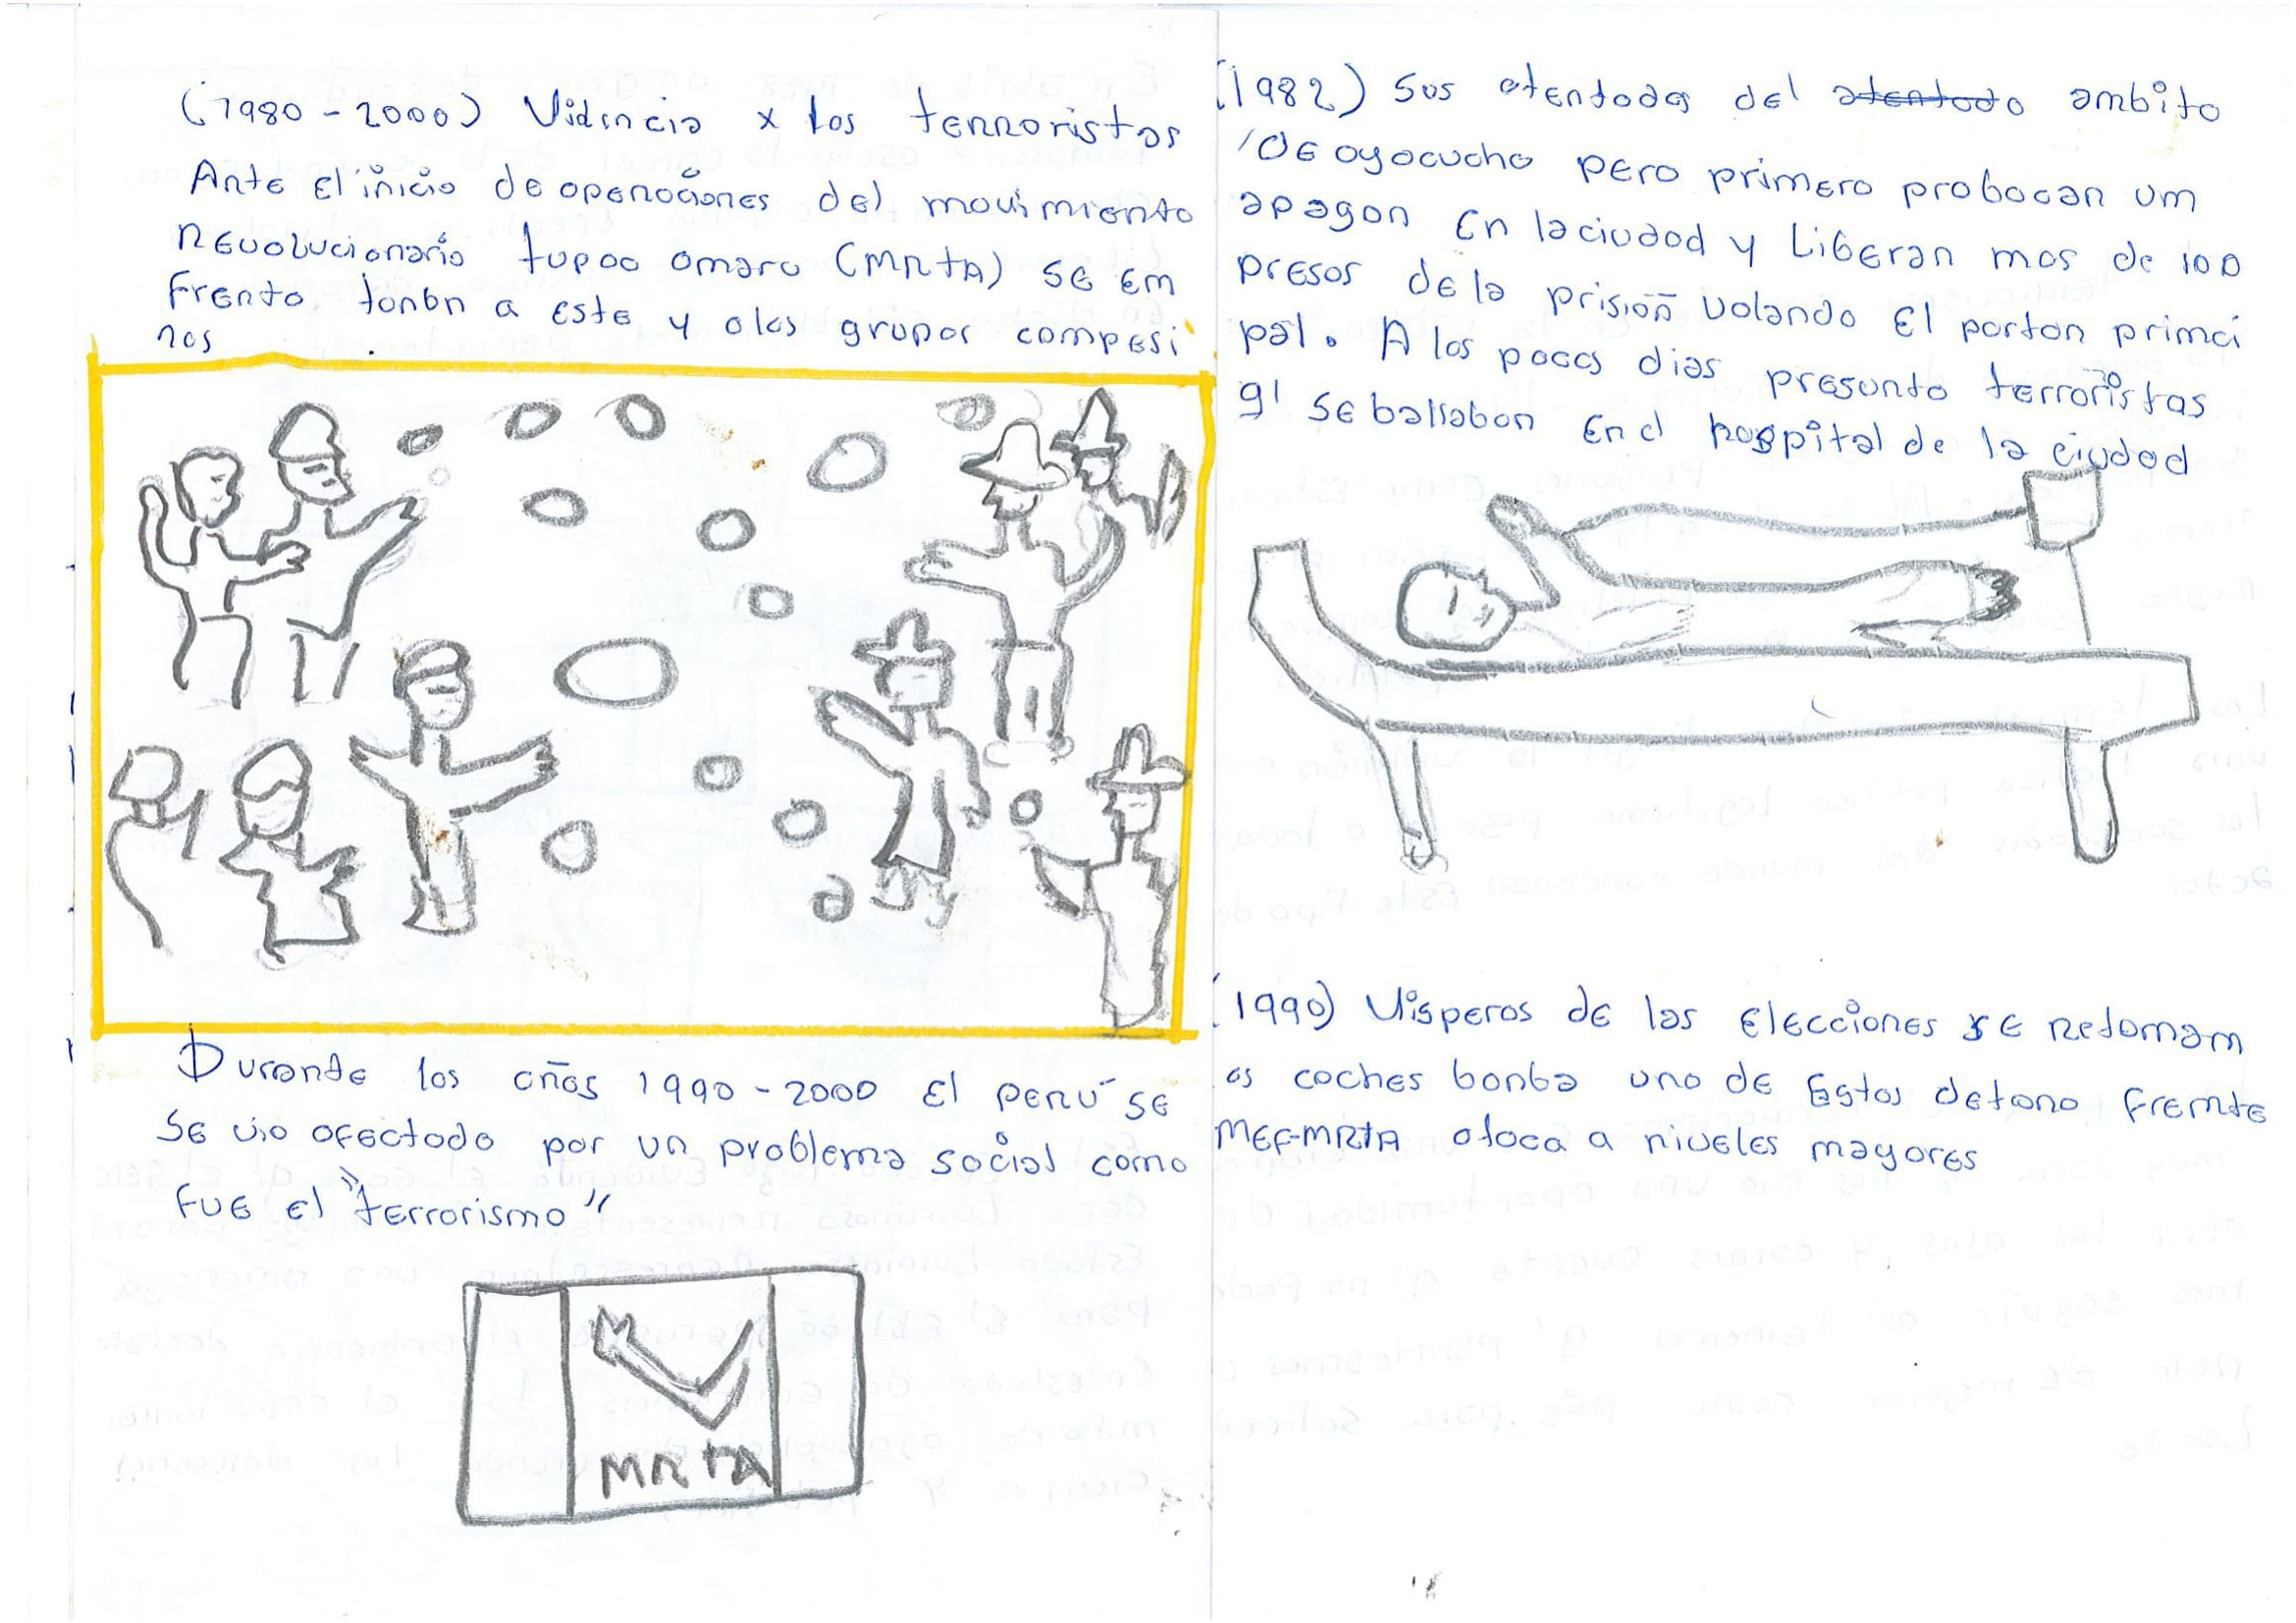 (1980 - 2000) Violencia x los terroristas
Ante el inicio de operaciones del movimiento
revolucionario tupac amaru (MRTA) se em
frento, tonbn a este y olos grupos campesi
nos
Durante los años 1990 - 2000 el perú se
se vio afectado por un problema social como
fue el "terrorismo"
MRTA
(1982) Sus atentados del atentado ambito
De ayacucho pero primero probocan um
apagon en la ciudad y Liberan mas de 100
presos de la prision volando el porton primci
pal. A los pocos dias presunto terroristas
q' se hallaban en el hospital de la ciudad
(1990) Visperas de las elecciones se retomam
os coches bonba uno de estos detono fremte
MEF-MRTA ataca a niveles mayores